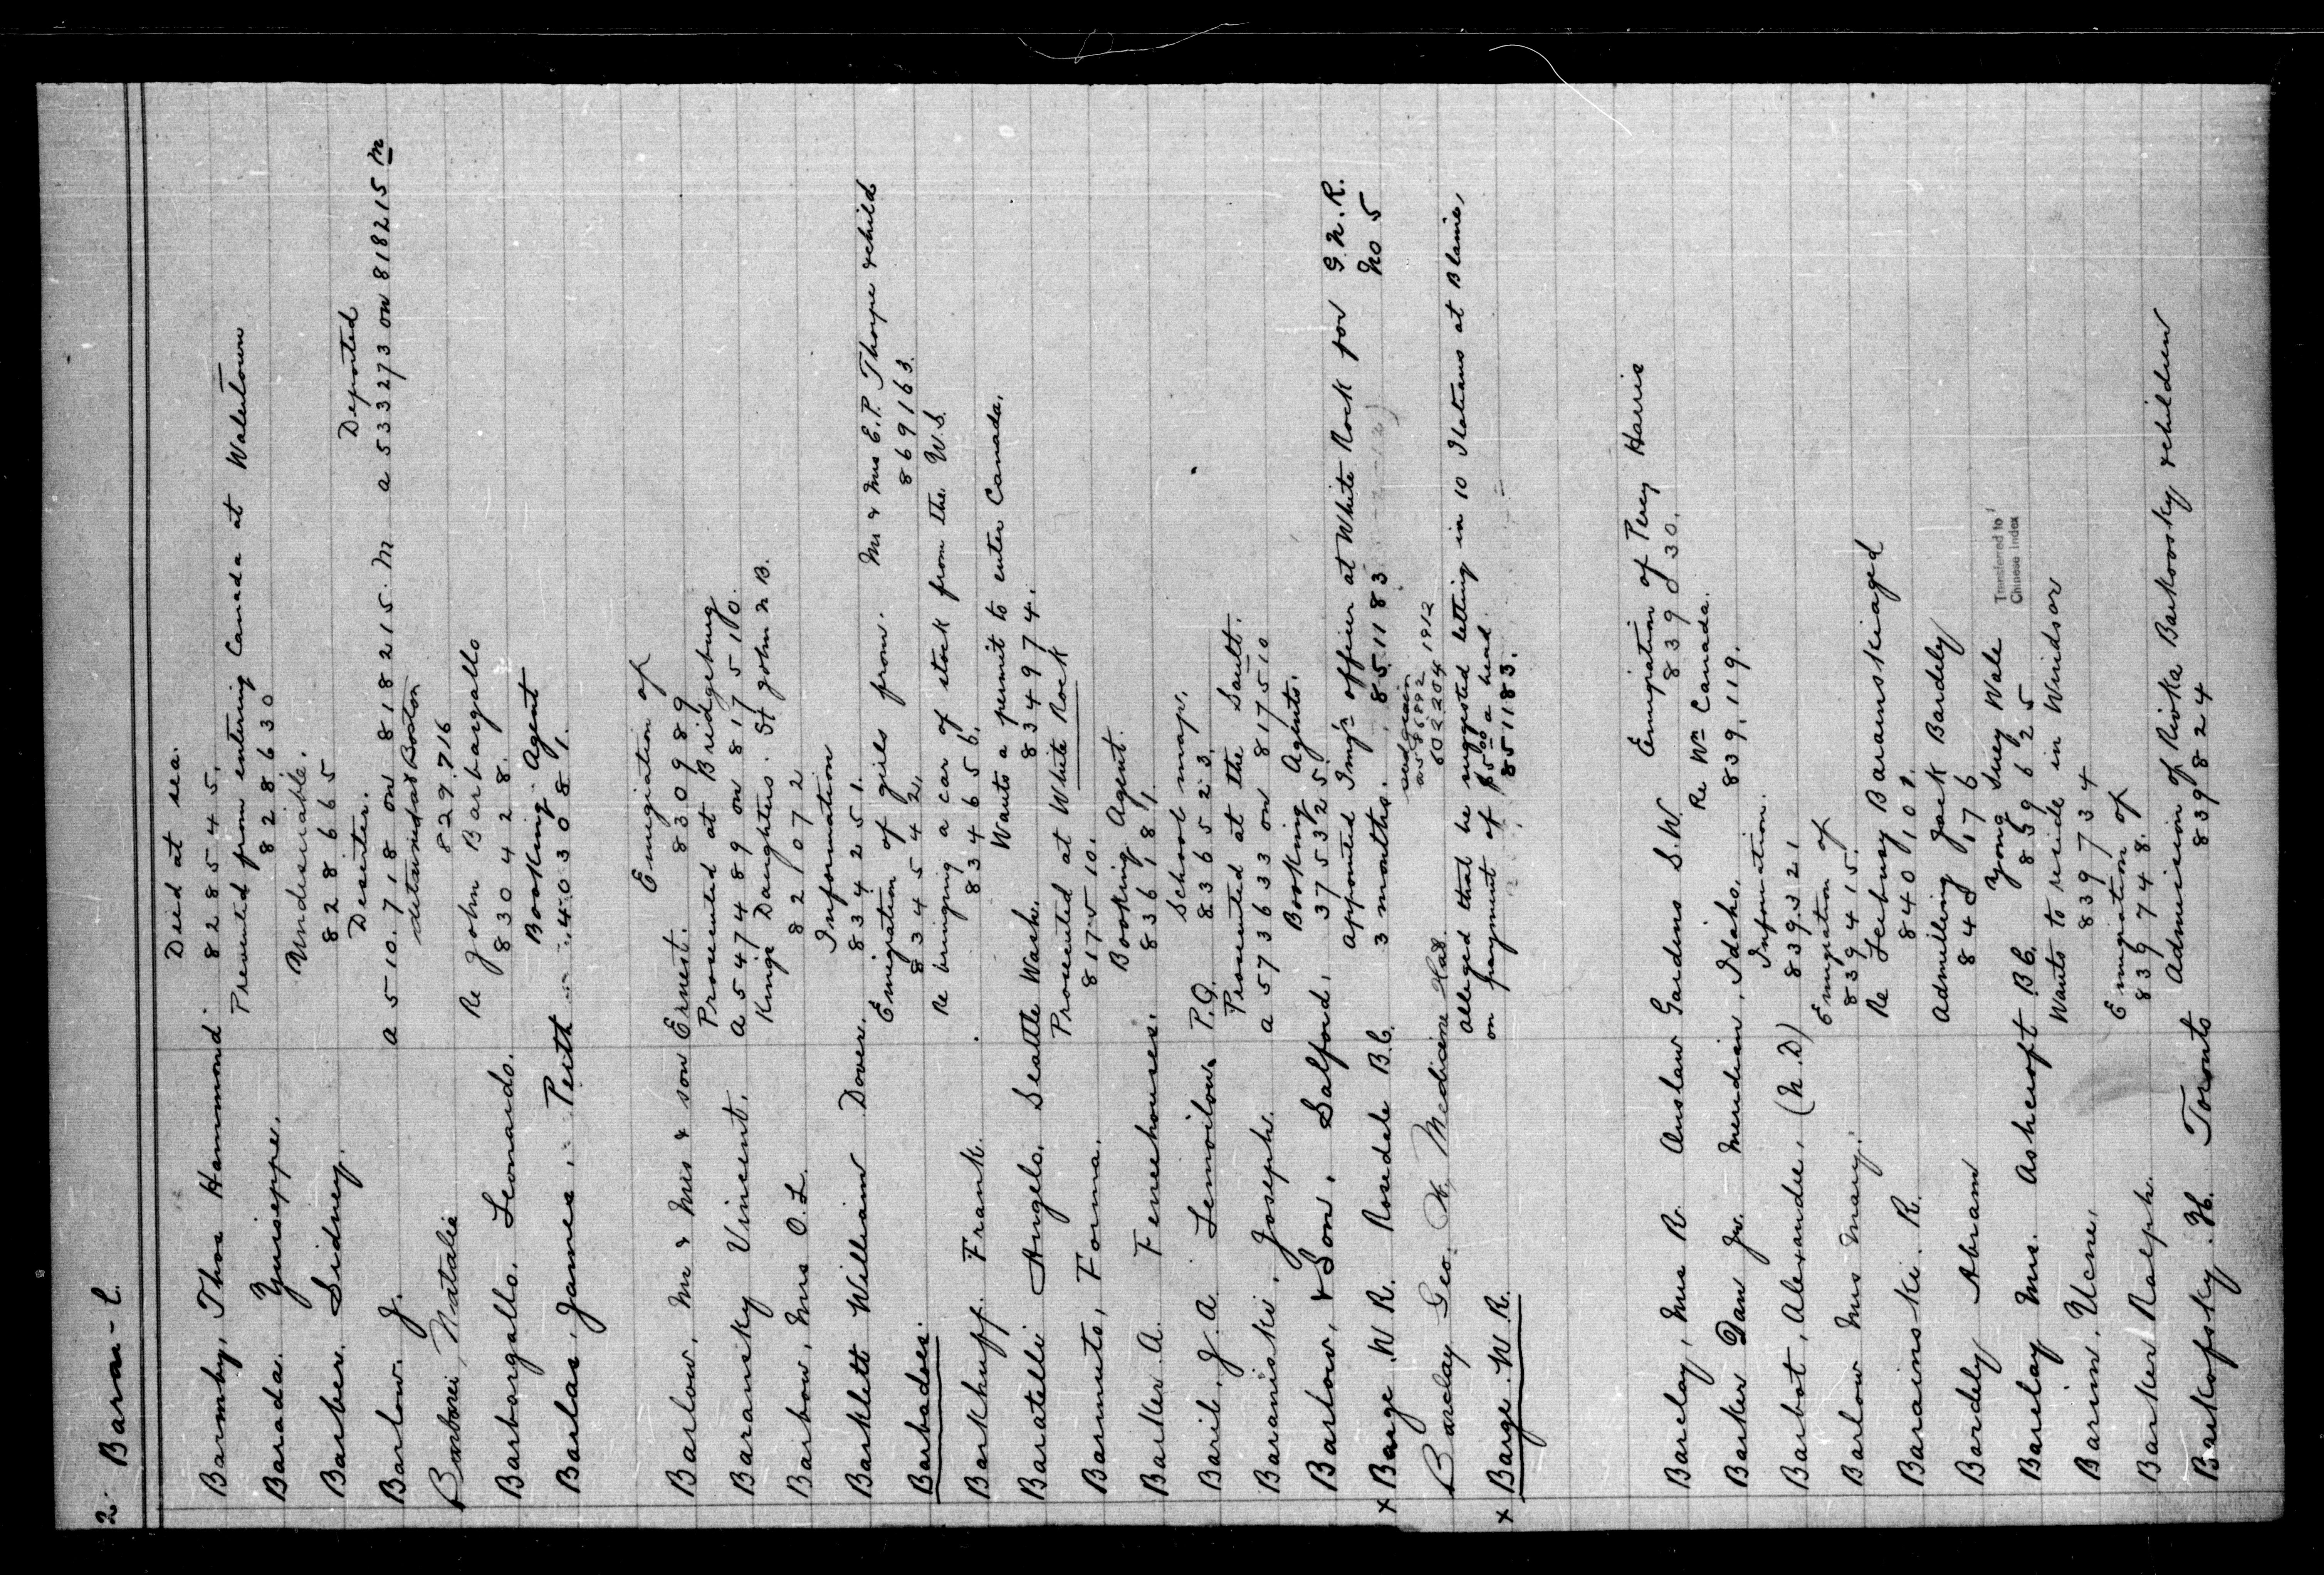 2. Baron - C.
Died at sea.
Barmby, Thos Hammond. 828545.
Prevented from entering Canada at Watertown
Barada. Guiseppe. 828630
Undesirable.
Barber. Sidney. 828665
Deserter. Deported
Barlow. J. a 510.718 on 818215. M a 533273 on 818215 M
detained at Boston
Barbarei, Natalie 829716
Re John Barbargallo
Barbargallo. Leonardo. 830428.
Booking Agent
Barlas, James, Perth 403081.
Emigration of
Barlow, Mr & Mrs & son Ernest. 830989
Prosecuted at Bridgeburg
Baransky Vincent. a 547489 on 817510.
Kings Daughters. St John N B.
Barbow, Mrs O.L. 821072
Information
Barklett William Dover. 834251.
Emigration of girls from. Mr & Mrs E.P. Thorpe & child
Barbadoes. 834542. 869163.
Re bringing a car of stock from the U.S.
Barkhuff. Frank. 834656.
Wants a permit to enter Canada.
Baratelli Angelo. Seattle Wash. 834974.
Prosecuted at White Rock
Barnuto, Forma. 817510.
Booking Agent.
Barker. A. Fencehouses. 836181.
School map.
Baril. J. A. Lemoilow P.Q. 836523.
Prosecuted at the Sault.
Baraniski, Joseph. a 573633 on 817510
Booking Agents.
Barlow, & Son. Salford. 375325.
appointed Imgn officer at White Rock for G.N.R.
x Barge. W R. Rosedale B.C. 3 months. 851183 No 5
seed grain
a586892 1912
Barclay Geo. H. Medicine Hat. 602204
Alleged that he suggested letting in 10 Italians at Blaine,
on payment of $5.00 a head
x Barge. W R. 851183.
Emigration of Percy Harris
Barclay, Mrs R. Anslaw Gardens S.W. 839030.
Re Wm Canada.
Barker Dan Jr. Meridian, Idaho. 839,119.
Information.
Barbot, Alexandre, (M.D) 839321
Emigration of
Barlow Mrs Mary. 839415.
Re Feebusy Baraenskiaged
Barainski. R. 840,101.
Admitting Jack Bardely
Bardely Abram 840,176
Yong Suey Wale
Barclay Mrs. Ashcroft B.C. 839625
Transferred to
Chinese Index
Wants to reside in Windsor
Barin, Ucne. 839734
Emigration of
Barker Ralph. 839748.
Admission of Rioka Barkoosky & children
Barkofsky. H. Toronto 839824